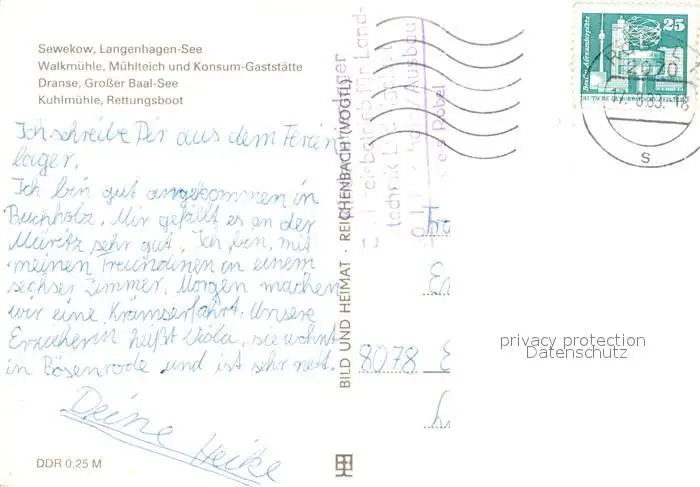 Sewekow, Langenhagen-See
Walkmühle, Mühlteich und Konsum-Gaststätte
Dranse, Großer Baal-See
Kuhlmühle, Rettungsboot
Ich schreibe Dir aus dem Ferien
lager.
Ich bin gut angekommen in
Buchholz. Mir gefällt es an der
Müritz sehr gut. Ich bin mit
meinen Freundinen in einem
sechser Zimmer. Morgen machen
wir eine Krämserfahrt. Unsere
Erzieherin heißt Viola, sie wohnt
in Bösenrode und ist sehr nett.
Deine Heike
DDR 0,25 M
BILD UND HEIMAT · REICHENBACH (VOGTL)
für Land-
technik
Ausbau
Röbel
8078
25
Berlin, Alexanderplatz
DEUTSCHE DEMOKRATISCHE REPUBLIK
2070
s
privacy protection
Datenschutz